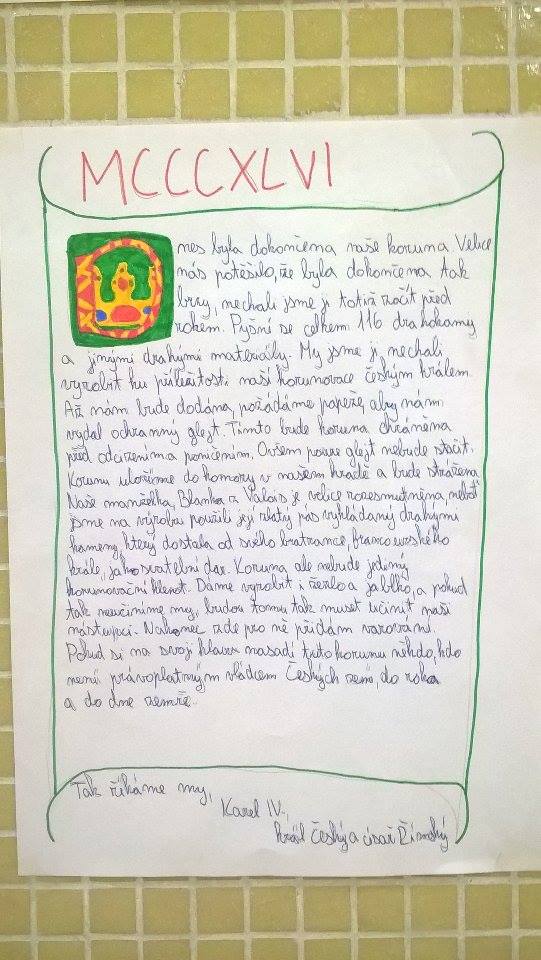 MCCCXLVI
nes byla dokončena naše koruna Velice
nás potěšilo, že byla dokončena tak
brzy, nechali jsme ji totiž začít před
rokem. Pyšní se celkem 116 drahokamy
a jinými drahými materiály. My jsme ji nechali
vyrobit ku příležitosti naší korunovace českým králem.
Až nám bude dodána, požádáme papeže, aby nám
vydal ochranný glejt. Tímto bude koruna chráněna
před odcizením a poničením. Ovšem pouze glejt nebude stačit.
Korunu uložíme do komory v našem hradě a bude střežena
Naše manželka, Blanka z Valois je velice rozesmutněna, neboť
jsme na výrobu použili její zlatý pás vykládaný drahými
kameny, který dostala od svého bratrance, francouzského
krále, jako svatební dar. Koruna ale nebude jediný
korunovační klenot. Dáme vyrobit i žezlo a jablko, a pokud
tak neučiníme my, budou tomu tak muset učinit naši
nástupci. Nakonec zde pro ně přidám varování.
Pokud si na svoji hlavu nasadí tuto korunu někdo, kdo
není právoplatným vládcem Českých zemí, do roka
a do dne zemře.
Tak říkáme my,
Karel IV.,
král Český a císař Římský